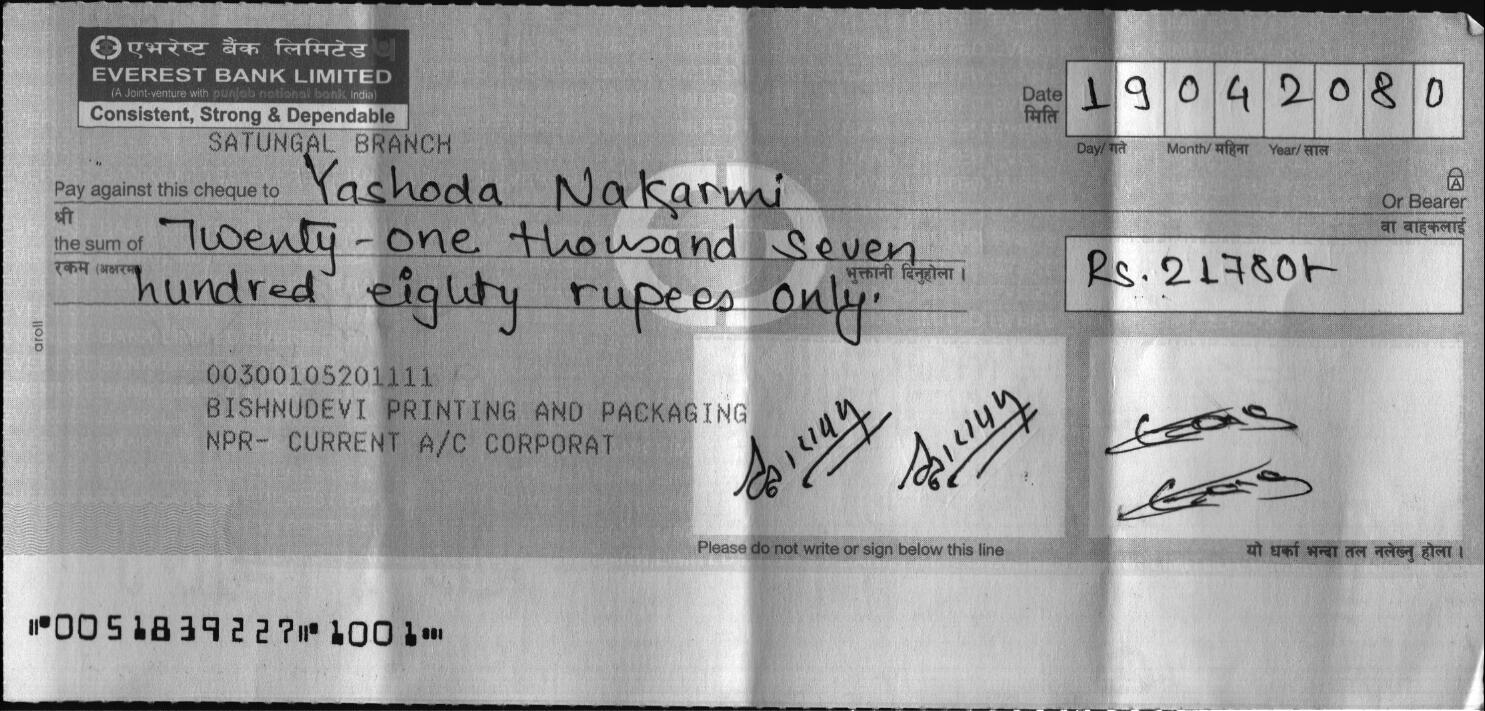 एभरेष्ट बैंक लिमिटेड
EVEREST BANK LIMITED
(A Joint-venture with punjab national bank India)
Consistent, Strong & Dependable
SATUNGAL BRANCH
Date
मिति
19042080
Day/ गते Month/ महिना Year/ साल
Pay against this cheque to Yashoda Nakarmi
श्री
Or Bearer
वा वाहकलाई
the sum of Twenty-one thousand seven
रकम (अक्षरमा) hundred eighty rupees only.
भुक्तानी दिनुहोला ।
Rs. 21780/-
aroll
00300105201111
BISHNUDEVI PRINTING AND PACKAGING
NPR- CURRENT A/C CORPORAT
Please do not write or sign below this line
यो धर्का भन्दा तल नलेख्नु होला ।
⑈0051839227⑈1001⑉